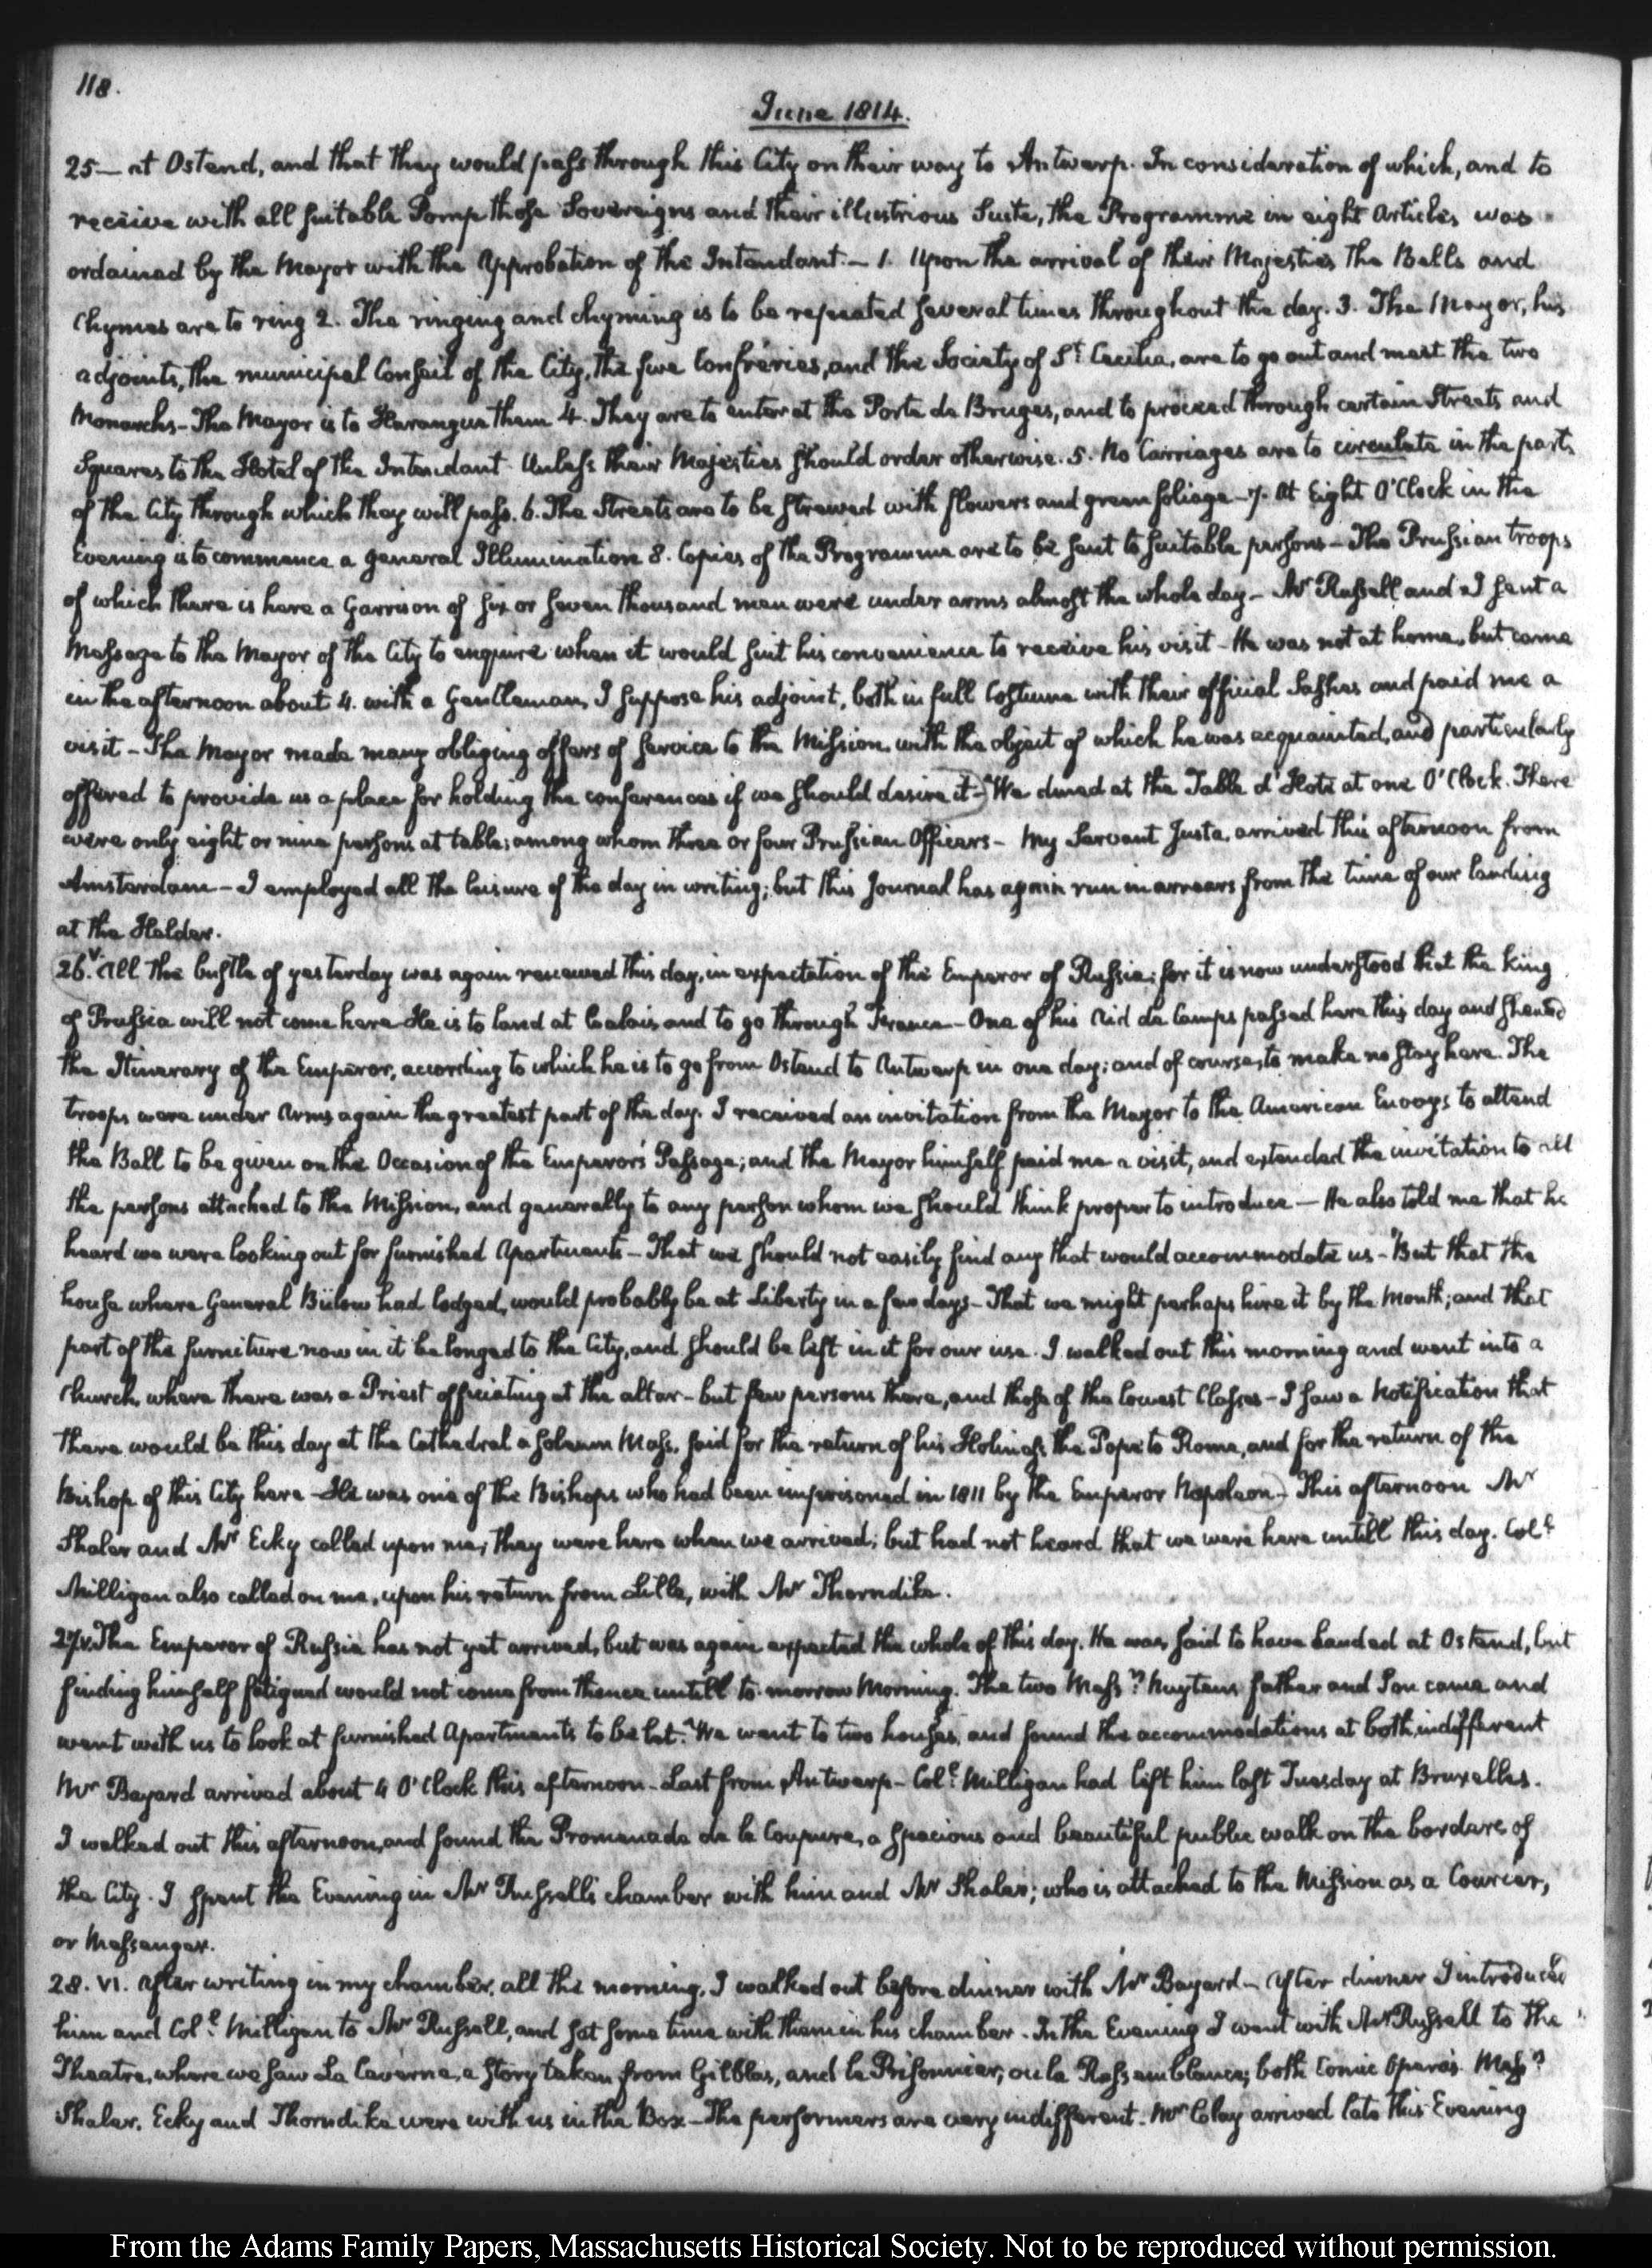 118.
June 1814.
25— at Ostend, and that they would pass through this City on their way to Antwerp. In consideration of which, and to
receive with all suitable Pomp those Sovereigns and their illustrious Suite, the Programme in eight Articles was
ordained by the Mayor with the Approbation of the Intendant.— 1. Upon the arrival of their Majesties the Bells and
Chymes are to ring 2. The ringing and chyming is to be repeated several times throughout the day. 3. The Mayor, his
adjoints, the municipal Conseil of the City, the five Confréries, and the Society of St. Cecilia, are to go out and meet the two
Monarchs— The Mayor is to Harangue them 4. They are to enter at the Porte de Bruges, and to proceed through certain Streets and
Squares to the Hotel of the Intendant. Unless their Majesties should order otherwise. 5. No Carriages are to circulate in the parts
of the City through which they will pass. 6. The Streets are to be strewed with flowers and green foliage— 7. At Eight O'Clock in the
Evening is to commence a general Illumination 8. Copies of the Programme are to be sent to suitable persons— The Prussian troops
of which there is here a Garrison of six or seven thousand men were under arms almost the whole day— Mr Russell and I sent a
Message to the Mayor of the City to enquire when it would suit his convenience to receive his visit— He was not at home, but came
in the afternoon about 4. with a Gentleman, I suppose his adjoint, both in full Costume with their official Sashes and paid me a
visit— The Mayor made many obliging offers of service to the Mission, with the object of which he was acquainted, and particularly
offered to provide us a place for holding the conferences if we should desire it— We dined at the Table d'Hote at one O'Clock. There
were only eight or nine persons at table; among whom three or four Prussian Officers— My Servant Juste, arrived this afternoon from
Amsterdam— I employed all the leisure of the day in writing; but this Journal has again run in arrears from the time of our landing
at the Helder.
26. V. All the bustle of yesterday was again renewed this day, in expectation of the Emperor of Russia; for it is now understood that the king
of Prussia will not come here— He is to land at Calais and to go through France— One of his Aid de Camps passed here this day and shewed
the Itinerary of the Emperor, according to which he is to go from Ostend to Antwerp in one day; and of course, to make no stay here. The
troops were under Arms again the greatest part of the day. I received an invitation from the Mayor to the American Envoys to attend
the Ball to be given on the Occasion of the Emperor's Passage; and the Mayor himself paid me a visit, and extended the invitation to all
the persons attached to the Mission, and generally to any person whom we should think proper to introduce— He also told me that he
heard we were looking out for furnished Apartments— That we should not easily find any that would accommodate us— But that the
house where General Bülow had lodged, would probably be at Liberty in a few days— That we might perhaps hire it by the Month; and that
part of the furniture now in it belonged to the City, and should be left in it for our use. I walked out this morning and went into a
Church, where there was a Priest officiating at the altar— but few persons there, and those of the lowest Classes— I saw a Notification that
there would be this day at the Cathedral a solemn Mass, said for the return of his Holiness the Pope to Rome, and for the return of the
Bishop of this City here— He was one of the Bishops who had been imprisoned in 1811 by the Emperor Napoleon— This afternoon Mr
Shaler and Mr Ecky called upon me; they were here when we arrived; but had not heard that we were here untill this day. Coll.
Milligan also called on me, upon his return from Lille, with Mr Thorndike.
27. V. The Emperor of Russia has not yet arrived, but was again expected the whole of this day. He was said to have Landed at Ostend, but
finding himself fatigued would not come from thence untill to-morrow Morning. The two Messrs Nuytens father and Son came and
went with us to look at furnished Apartments to be let. We went to two houses, and found the accommodations at both, indifferent
Mr Bayard arrived about 4 O'Clock this afternoon— Last from Antwerp— Coll. Milligan had left him last Tuesday at Bruxelles.
I walked out this afternoon, and found the Promenade de la Coupure, a spacious and beautiful public walk on the borders of
the City. I spent the Evening in Mr Russell's chamber with him and Mr Shaler; who is attached to the Mission as a Courier,
or Messenger.
28. VI. After writing in my chamber, all the morning, I walked out before dinner with Mr Bayard— After dinner I introduced
him and Coll. Milligan to Mr Russell, and sat some time with them in his chamber. In the Evening I went with Mr Russell to the
Theatre, where we saw La Caverne, a story taken from Gilblas, and le Prisonnier, ou la Ressemblance; both Comic Opera's. Messrs
Shaler, Ecky and Thorndike were with us in the Box— The performers are very indifferent. Mr Clay arrived late this Evening
From the Adams Family Papers, Massachusetts Historical Society. Not to be reproduced without permission.